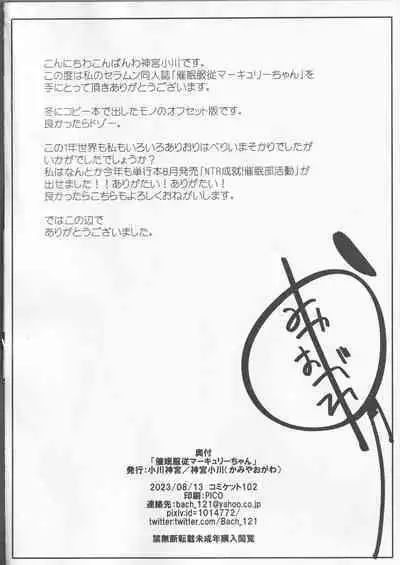 こんにちわこんばんわ神宮小川です。
この度は私のセラムン同人誌「催眠服従マーキュリーちゃん」を
手にとって頂きありがとうございます。
冬にコピー本で出したモノのオフセット版です。
良かったらドゾー。
この1年世界も私もいろいろありおりはべりいまそかりでしたが
いかがでしたでしょうか？
私はなんとか今年も単行本8月発売「NTR成就!催眠部活動」が
出せました！！ありがたい！ありがたい！
良かったらこちらもよろしくおねがいします。
ではこの辺で
ありがとうございました。
奥付
「催眠服従マーキュリーちゃん」
発行：小川神宮／神宮小川（かみやおがわ）
2023/08/13 コミケット102
印刷：PICO
連絡先：bach_121@yahoo.co.jp
pixiv:id=1014772/
twitter:twitter.com/Bach_121
禁無断転載未成年購入閲覧